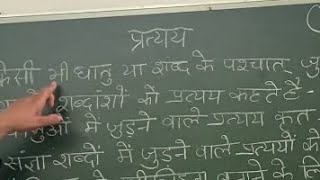 प्रत्यय
किसी भी धातु या शब्द के पश्चात् जु
शब्दांशों को प्रत्यय कहते हैं -
में जुड़ने वाले प्रत्यय कृत
संज्ञा शब्दों में जुड़ने वाले प्रत्ययों को
के लिए